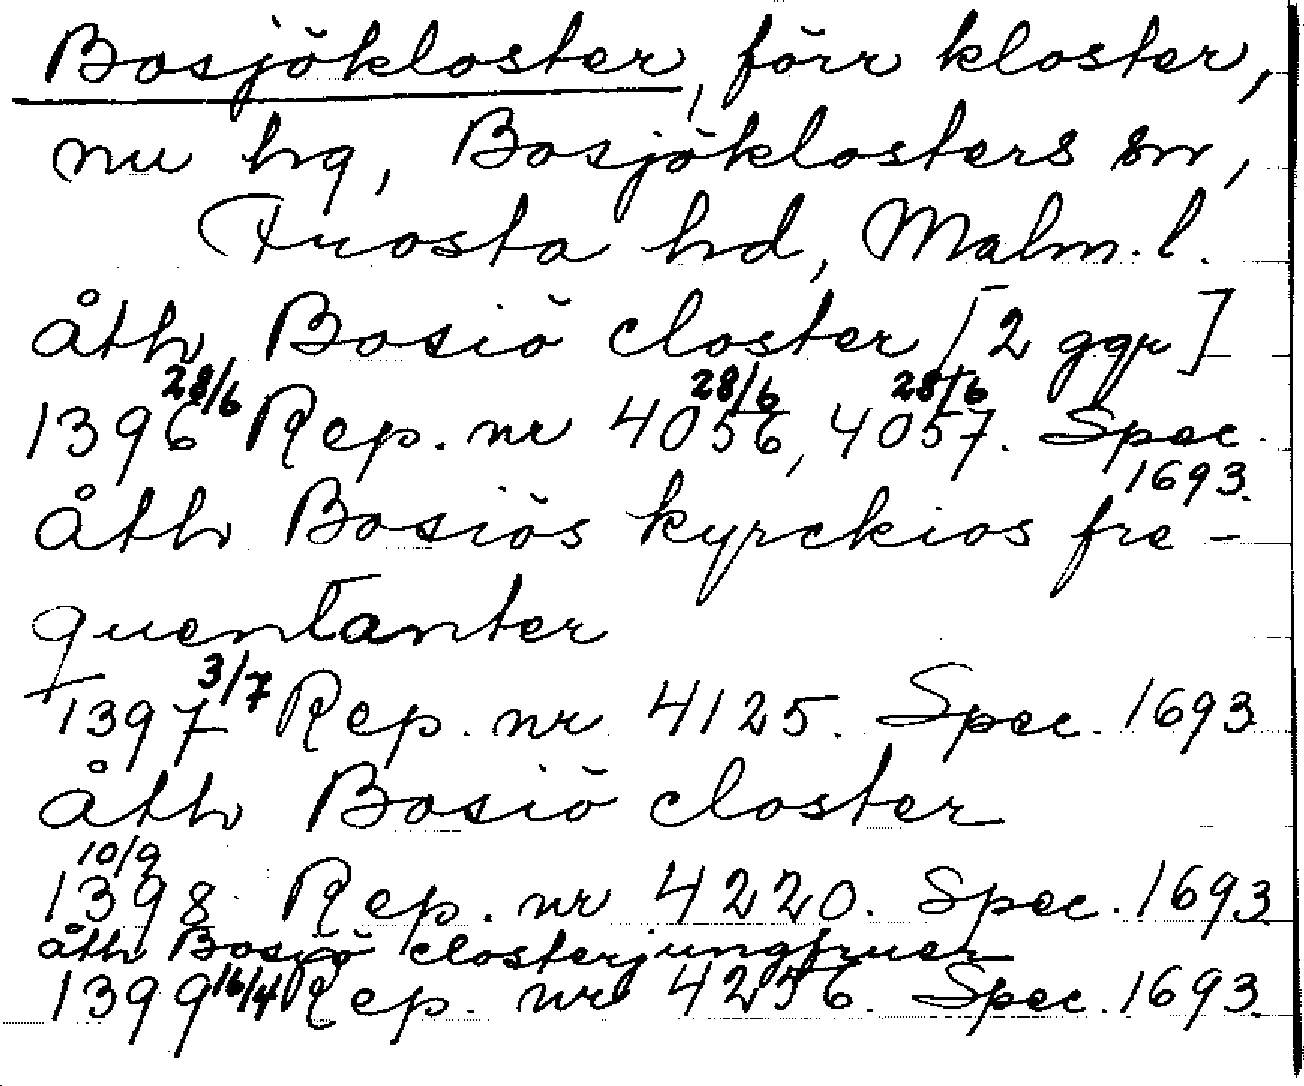 Bosjökloster, förr kloster,
nu hg, Bosjöklosters sn,
Frosta hd, Malm. l.
åth Bosiö closter [2 ggr]
1396 28/6 Rep. nr 4056 28/6, 4057 28/6. Spec. 1693.
åth Bosiös kyrckios fre-
quentanter
1397 3/7 Rep. nr 4125. Spec. 1693
åth Bosiö closter
1398 10/9 Rep. nr 4220. Spec. 1693
åth Bosiö closterjungfruer
1399 16/4 Rep. nr 4256. Spec. 1693.